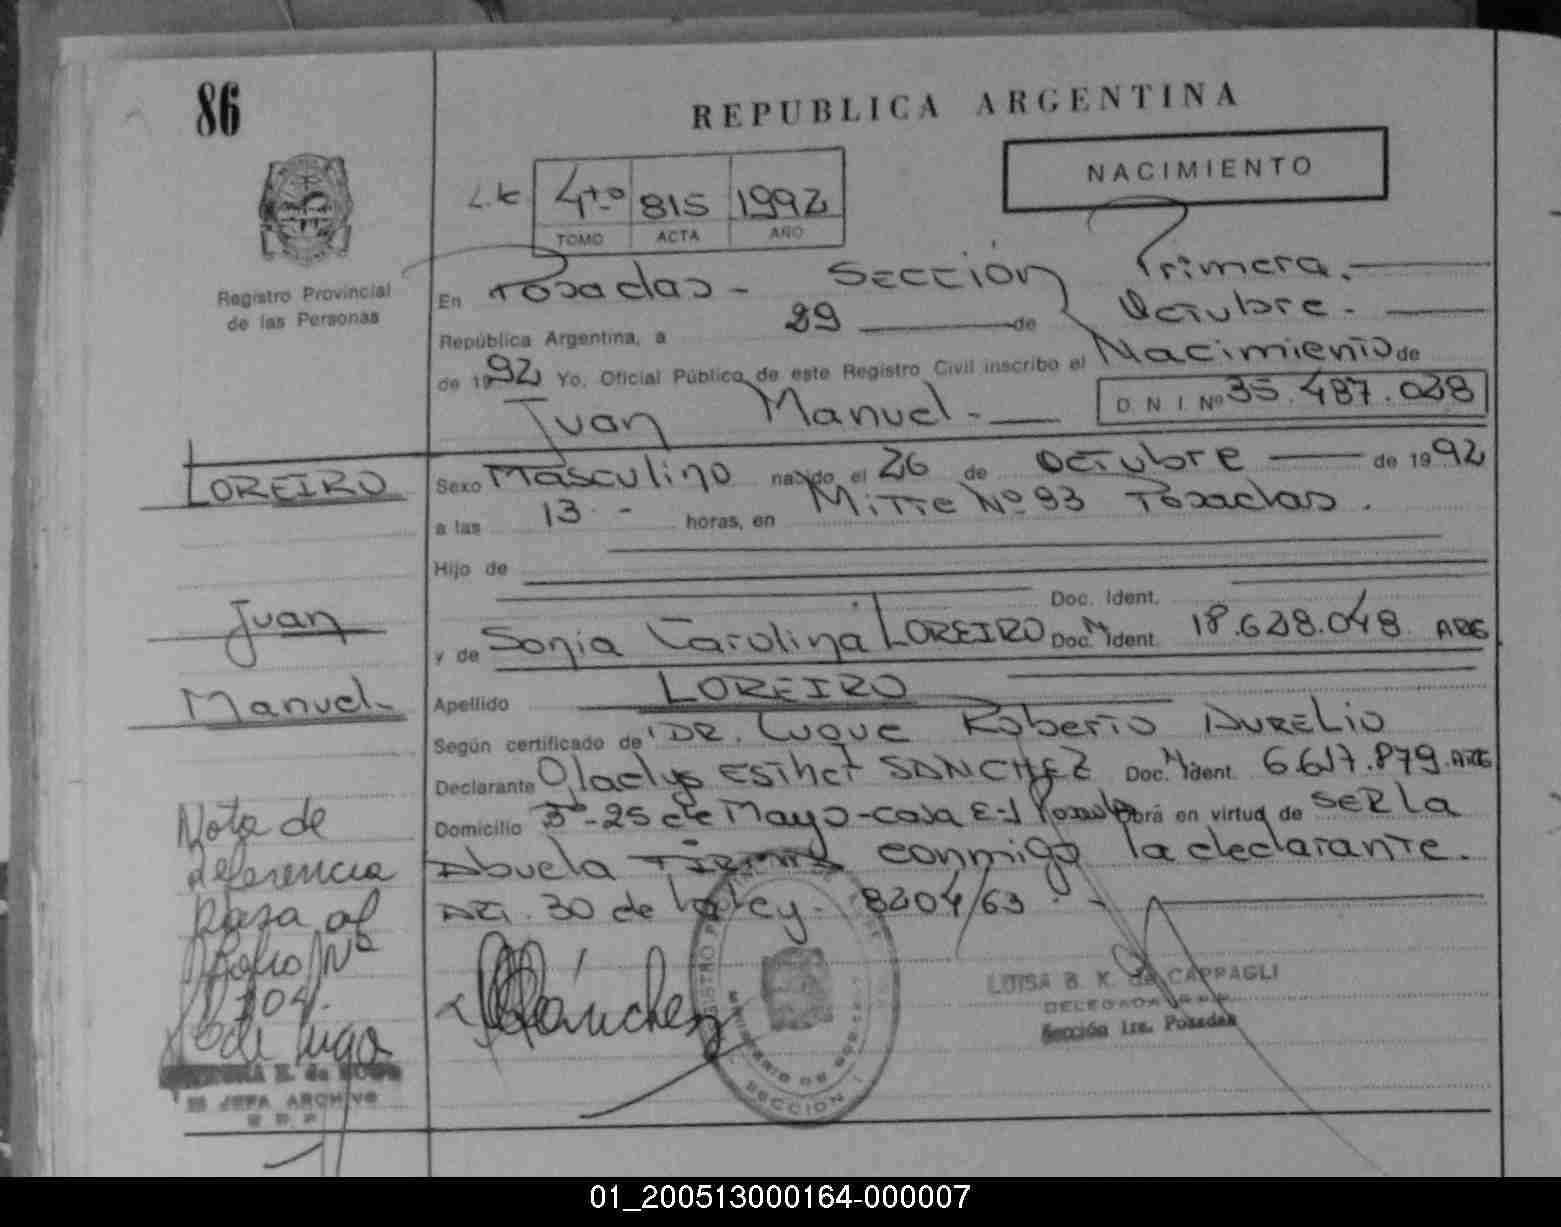 86
REPUBLICA ARGENTINA
NACIMIENTO
4to 815 1992
TOMO ACTA AÑO
Registro Provincial
de las Personas
En Posadas - Sección Primera.
República Argentina, a 29 de Octubre.
de 1992 Yo, Oficial Público de este Registro Civil inscribo el Nacimiento de
Juan Manuel - D. N. I. Nº 35.487.028
LOREIRO
Juan
Manuel
Sexo Masculino nacido el 26 de Octubre de 1992
a las 13 - horas, en Mitre Nº 93 Posadas.
Hijo de
Doc. Ident.
y de Sonia Carolina LOREIRO Doc. Ident. 18.628.048 ARG
Apellido LOREIRO
Según certificado de DR. Luque Roberto AURELIO
Declarante Gladys Esther SANCHEZ Doc. Ident. 6.617.879. ARG
Domicilio 25 de Mayo - casa E-1 Obra en virtud de SER la
Abuela conmigo la declarante.
Art. 30 de la Ley. 8204/63.
Nota de
Referencia
pasa al
folio Nº
104.
Sánchez
LUISA B. K. de CAPPAGLI
DELEGADA R.P.P.
Sección 1ra. Posadas
JEFA ARCHIVO
R.P.P.
SECCION 1
01_200513000164-000007